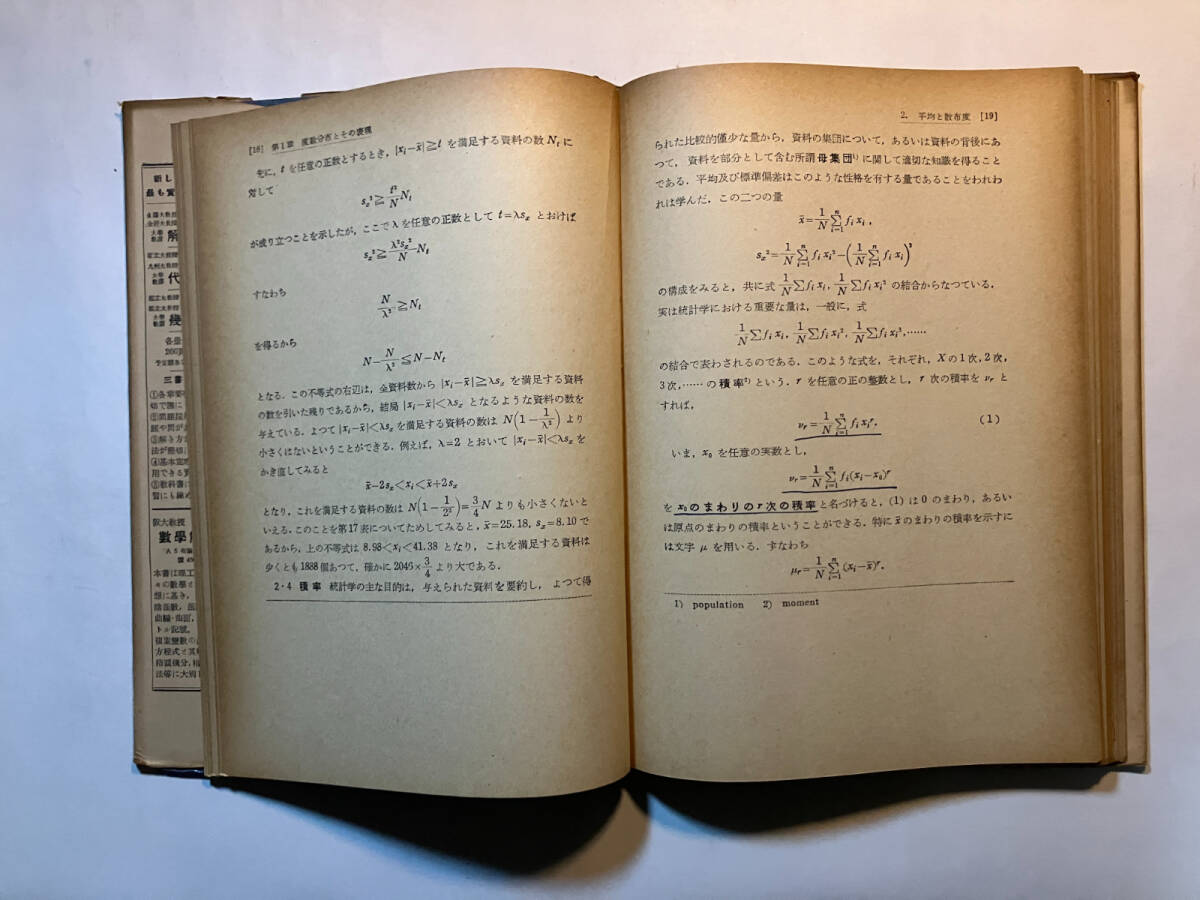 [18] 第1章 度数分布とその表現
先に, t を任意の正数とするとき, |xᵢ−x̄|≧t を満足する資料の数 Nₜ に
対して
sₓ²≧t²/N Nₜ
が成り立つことを示したが, ここで λ を任意の正数として t=λsₓ とおけば
sₓ²≧λ²sₓ²/N Nₜ
すなわち
N/λ²≧Nₜ
を得るから
N−N/λ²≦N−Nₜ
となる. この不等式の右辺は, 全資料数から |xᵢ−x̄|≧λsₓ を満足する資料
の数を引いた残りであるから, 結局 |xᵢ−x̄|<λsₓ となるような資料の数を
与えている. よつて |xᵢ−x̄|<λsₓ を満足する資料の数は N(1−1/λ²) より
小さくはないということができる. 例えば, λ=2 とおいて |xᵢ−x̄|<λsₓ を
かき直してみると
x̄−2sₓ<xᵢ<x̄+2sₓ
となり, これを満足する資料の数は N(1−1/2²)=3/4 N よりも小さくないと
いえる. このことを第17表についてためしてみると, x̄=25.18, sₓ=8.10 で
あるから, 上の不等式は 8.98<xᵢ<41.38 となり, これを満足する資料は
少くとも 1888 個あつて, 確かに 2046×3/4 より大である.
2・4 積率 統計学の主な目的は, 与えられた資料を要約し, よつて得
2. 平均と散布度 [19]
られた比較的僅少な量から, 資料の集団について, あるいは資料の背後にあ
つて, 資料を部分として含む所謂母集団¹⁾ に関して適切な知識を得ること
である. 平均及び標準偏差はこのような性格を有する量であることをわれわ
れは学んだ. この二つの量
x̄=1/N Σⁿᵢ₌₁ fᵢxᵢ,
sₓ²=1/N Σⁿᵢ₌₁ fᵢxᵢ²−(1/N Σⁿᵢ₌₁ fᵢxᵢ)²
の構成をみると, 共に式 1/N Σfᵢxᵢ, 1/N Σfᵢxᵢ² の結合からなつている.
実は統計学における重要な量は, 一般に, 式
1/N Σfᵢxᵢ, 1/N Σfᵢxᵢ², 1/N Σfᵢxᵢ³, ……
の結合で表わされるのである. このような式を, それぞれ, X の1次, 2次,
3次, …… の積率²⁾ という. r を任意の正の整数とし, r 次の積率を νᵣ と
すれば,
νᵣ=1/N Σⁿᵢ₌₁ fᵢxᵢʳ. (1)
いま, x₀ を任意の実数とし,
νᵣ=1/N Σⁿᵢ₌₁ fᵢ(xᵢ−x₀)ʳ
を x₀のまわりのr次の積率と名づけると, (1) は 0 のまわり, あるい
は原点のまわりの積率ということができる. 特に x̄ のまわりの積率を示すに
は文字 μ を用いる. すなわち
μᵣ=1/N Σⁿᵢ₌₁ (xᵢ−x̄)ʳ.
1) population 2) moment
新し
最も
解
代
幾
三書
阪大教授
本書は理工
想に基き,
トル記號,